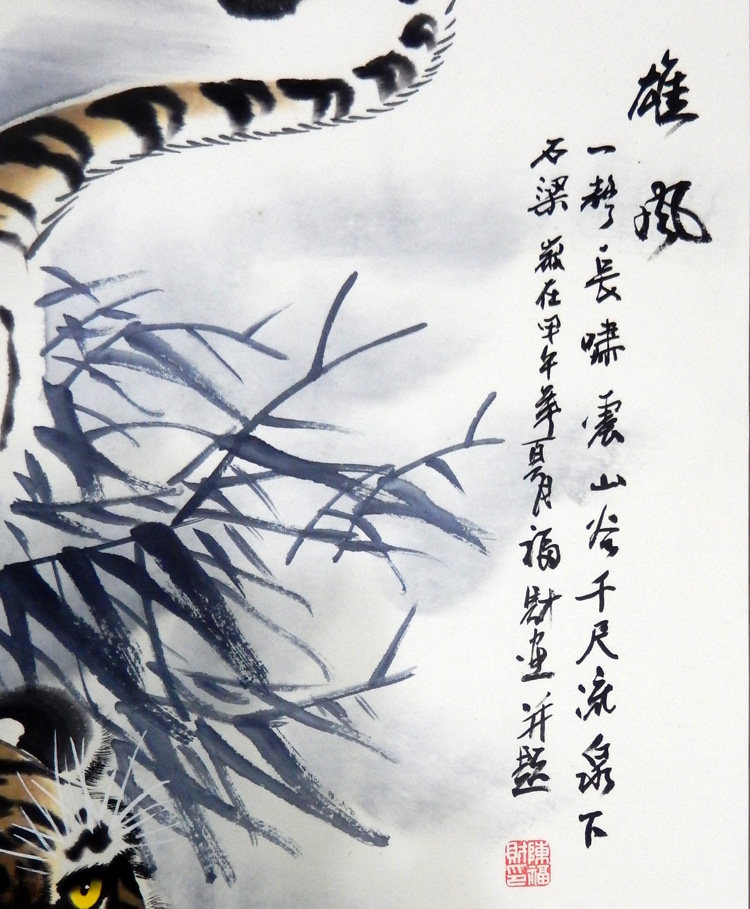 雄風
一聲長嘯震山谷千尺流泉下
石梁 歲在甲午年月福財畫并題
陳福財印